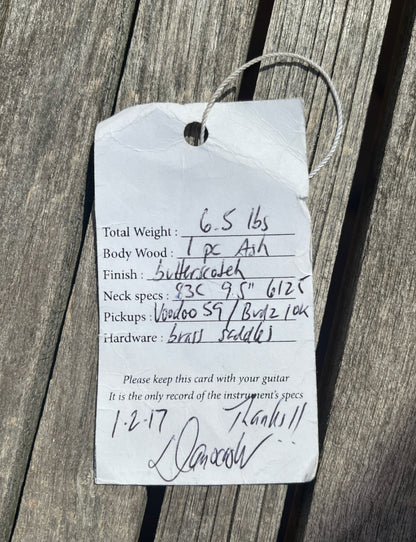 Total Weight : 6.5 lbs
Body Wood : 1 pc Ash
Finish : butterscotch
Neck specs : 83C 9.5" 6125
Pickups : Voodoo 59 / Budz 10k
Hardware : brass saddles
Please keep this card with your guitar
It is the only record of the instrument's specs
1-2-17 Thanks!!